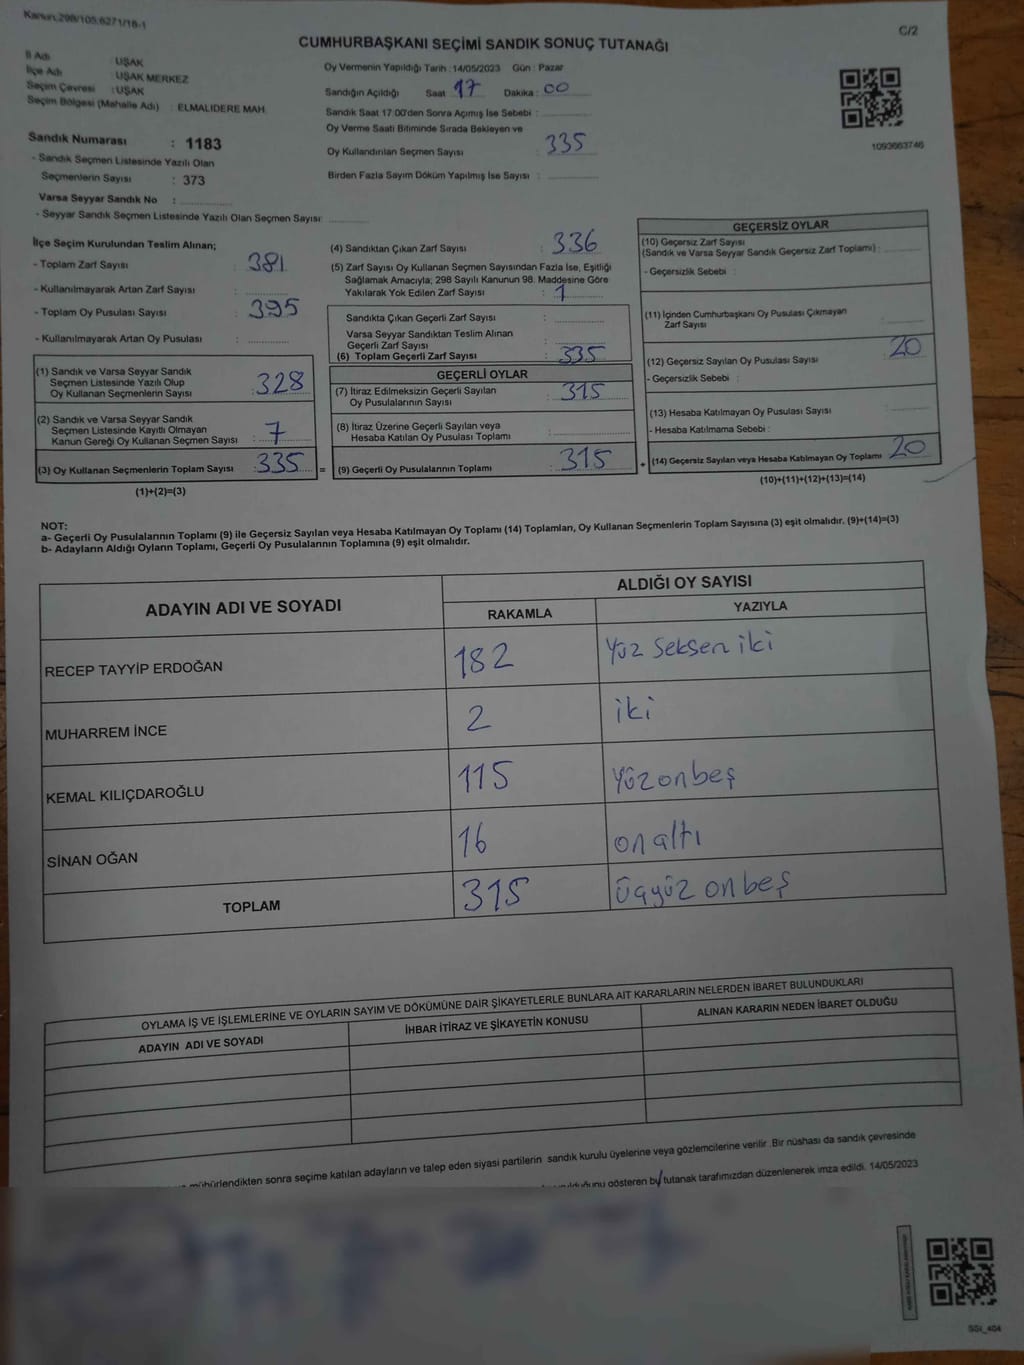 Kanun:298/105,6271/18-1
C/2
CUMHURBAŞKANI SEÇİMİ SANDIK SONUÇ TUTANAĞI
İl Adı : UŞAK
İlçe Adı : UŞAK MERKEZ
Seçim Çevresi : UŞAK
Seçim Bölgesi (Mahalle Adı) : ELMALIDERE MAH.
Sandık Numarası : 1183
- Sandık Seçmen Listesinde Yazılı Olan
Seçmenlerin Sayısı : 373
Varsa Seyyar Sandık No :
- Seyyar Sandık Seçmen Listesinde Yazılı Olan Seçmen Sayısı
Oy Vermenin Yapıldığı Tarih : 14/05/2023 Gün : Pazar
Sandığın Açıldığı Saat 17 Dakika : 00
Sandık Saat 17.00'den Sonra Açımış İse Sebebi :
Oy Verme Saati Bitiminde Sırada Bekleyen ve
Oy Kullandırılan Seçmen Sayısı : 335
Birden Fazla Sayım Döküm Yapılmış İse Sayısı :
1093663746
İlçe Seçim Kurulundan Teslim Alınan;
- Toplam Zarf Sayısı : 381
- Kullanılmayarak Artan Zarf Sayısı :
- Toplam Oy Pusulası Sayısı : 395
- Kullanılmayarak Artan Oy Pusulası :
(1) Sandık ve Varsa Seyyar Sandık
Seçmen Listesinde Yazılı Olup
Oy Kullanan Seçmenlerin Sayısı : 328
(2) Sandık ve Varsa Seyyar Sandık
Seçmen Listesinde Kayıtlı Olmayan
Kanun Gereği Oy Kullanan Seçmen Sayısı : 7
(3) Oy Kullanan Seçmenlerin Toplam Sayısı : 335 =
(1)+(2)=(3)
(4) Sandıktan Çıkan Zarf Sayısı : 336
(5) Zarf Sayısı Oy Kullanan Seçmen Sayısından Fazla İse, Eşitliği
Sağlamak Amacıyla; 298 Sayılı Kanunun 98. Maddesine Göre
Yakılarak Yok Edilen Zarf Sayısı : 1
Sandıkta Çıkan Geçerli Zarf Sayısı :
Varsa Seyyar Sandıktan Teslim Alınan
Geçerli Zarf Sayısı :
(6) Toplam Geçerli Zarf Sayısı : 335
GEÇERLİ OYLAR
(7) İtiraz Edilmeksizin Geçerli Sayılan
Oy Pusulalarının Sayısı : 315
(8) İtiraz Üzerine Geçerli Sayılan veya
Hesaba Katılan Oy Pusulası Toplamı :
(9) Geçerli Oy Pusulalarının Toplamı : 315 +
GEÇERSİZ OYLAR
(10) Geçersiz Zarf Sayısı
(Sandık ve Varsa Seyyar Sandık Geçersiz Zarf Toplamı) :
- Geçersizlik Sebebi :
(11) İçinden Cumhurbaşkanı Oy Pusulası Çıkmayan
Zarf Sayısı :
(12) Geçersiz Sayılan Oy Pusulası Sayısı : 20
- Geçersizlik Sebebi :
(13) Hesaba Katılmayan Oy Pusulası Sayısı :
- Hesaba Katılmama Sebebi :
(14) Geçersiz Sayılan veya Hesaba Katılmayan Oy Toplamı 20
(10)+(11)+(12)+(13)=(14)
NOT:
a- Geçerli Oy Pusulalarının Toplamı (9) ile Geçersiz Sayılan veya Hesaba Katılmayan Oy Toplamı (14) Toplamları, Oy Kullanan Seçmenlerin Toplam Sayısına (3) eşit olmalıdır. (9)+(14)=(3)
b- Adayların Aldığı Oyların Toplamı, Geçerli Oy Pusulalarının Toplamına (9) eşit olmalıdır.
ADAYIN ADI VE SOYADI
ALDIĞI OY SAYISI
RAKAMLA YAZIYLA
RECEP TAYYİP ERDOĞAN 182 Yüz Seksen iki
MUHARREM İNCE 2 iki
KEMAL KILIÇDAROĞLU 115 Yüzonbeş
SİNAN OĞAN 16 on altı
TOPLAM 315 üçyüz onbeş
OYLAMA İŞ VE İŞLEMLERİNE VE OYLARIN SAYIM VE DÖKÜMÜNE DAİR ŞİKAYETLERLE BUNLARA AİT KARARLARIN NELERDEN İBARET BULUNDUKLARI
ADAYIN ADI VE SOYADI İHBAR İTİRAZ VE ŞİKAYETİN KONUSU ALINAN KARARIN NEDEN İBARET OLDUĞU
mühürlendikten sonra seçime katılan adayların ve talep eden siyasi partilerin sandık kurulu üyelerine veya gözlemcilerine verilir .Bir nüshası da sandık çevresinde
gösteren bu tutanak tarafımızdan düzenlenerek imza edildi. 14/05/2023